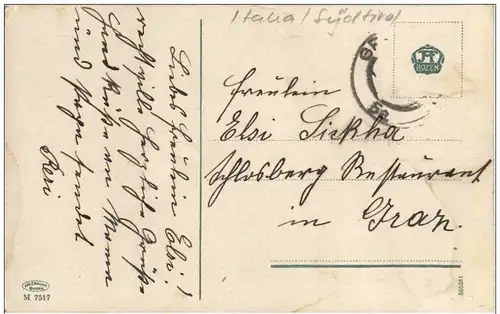 Italia / Südtirol
BOZEN
Liebes Fräulein Elsi!
recht viele herzliche Grüße
und Küße an Mama
und Papa sendet
Resi
Fräulein
Elsi Sickha
Schlosberg Restaurant
in Graz.
M 7517